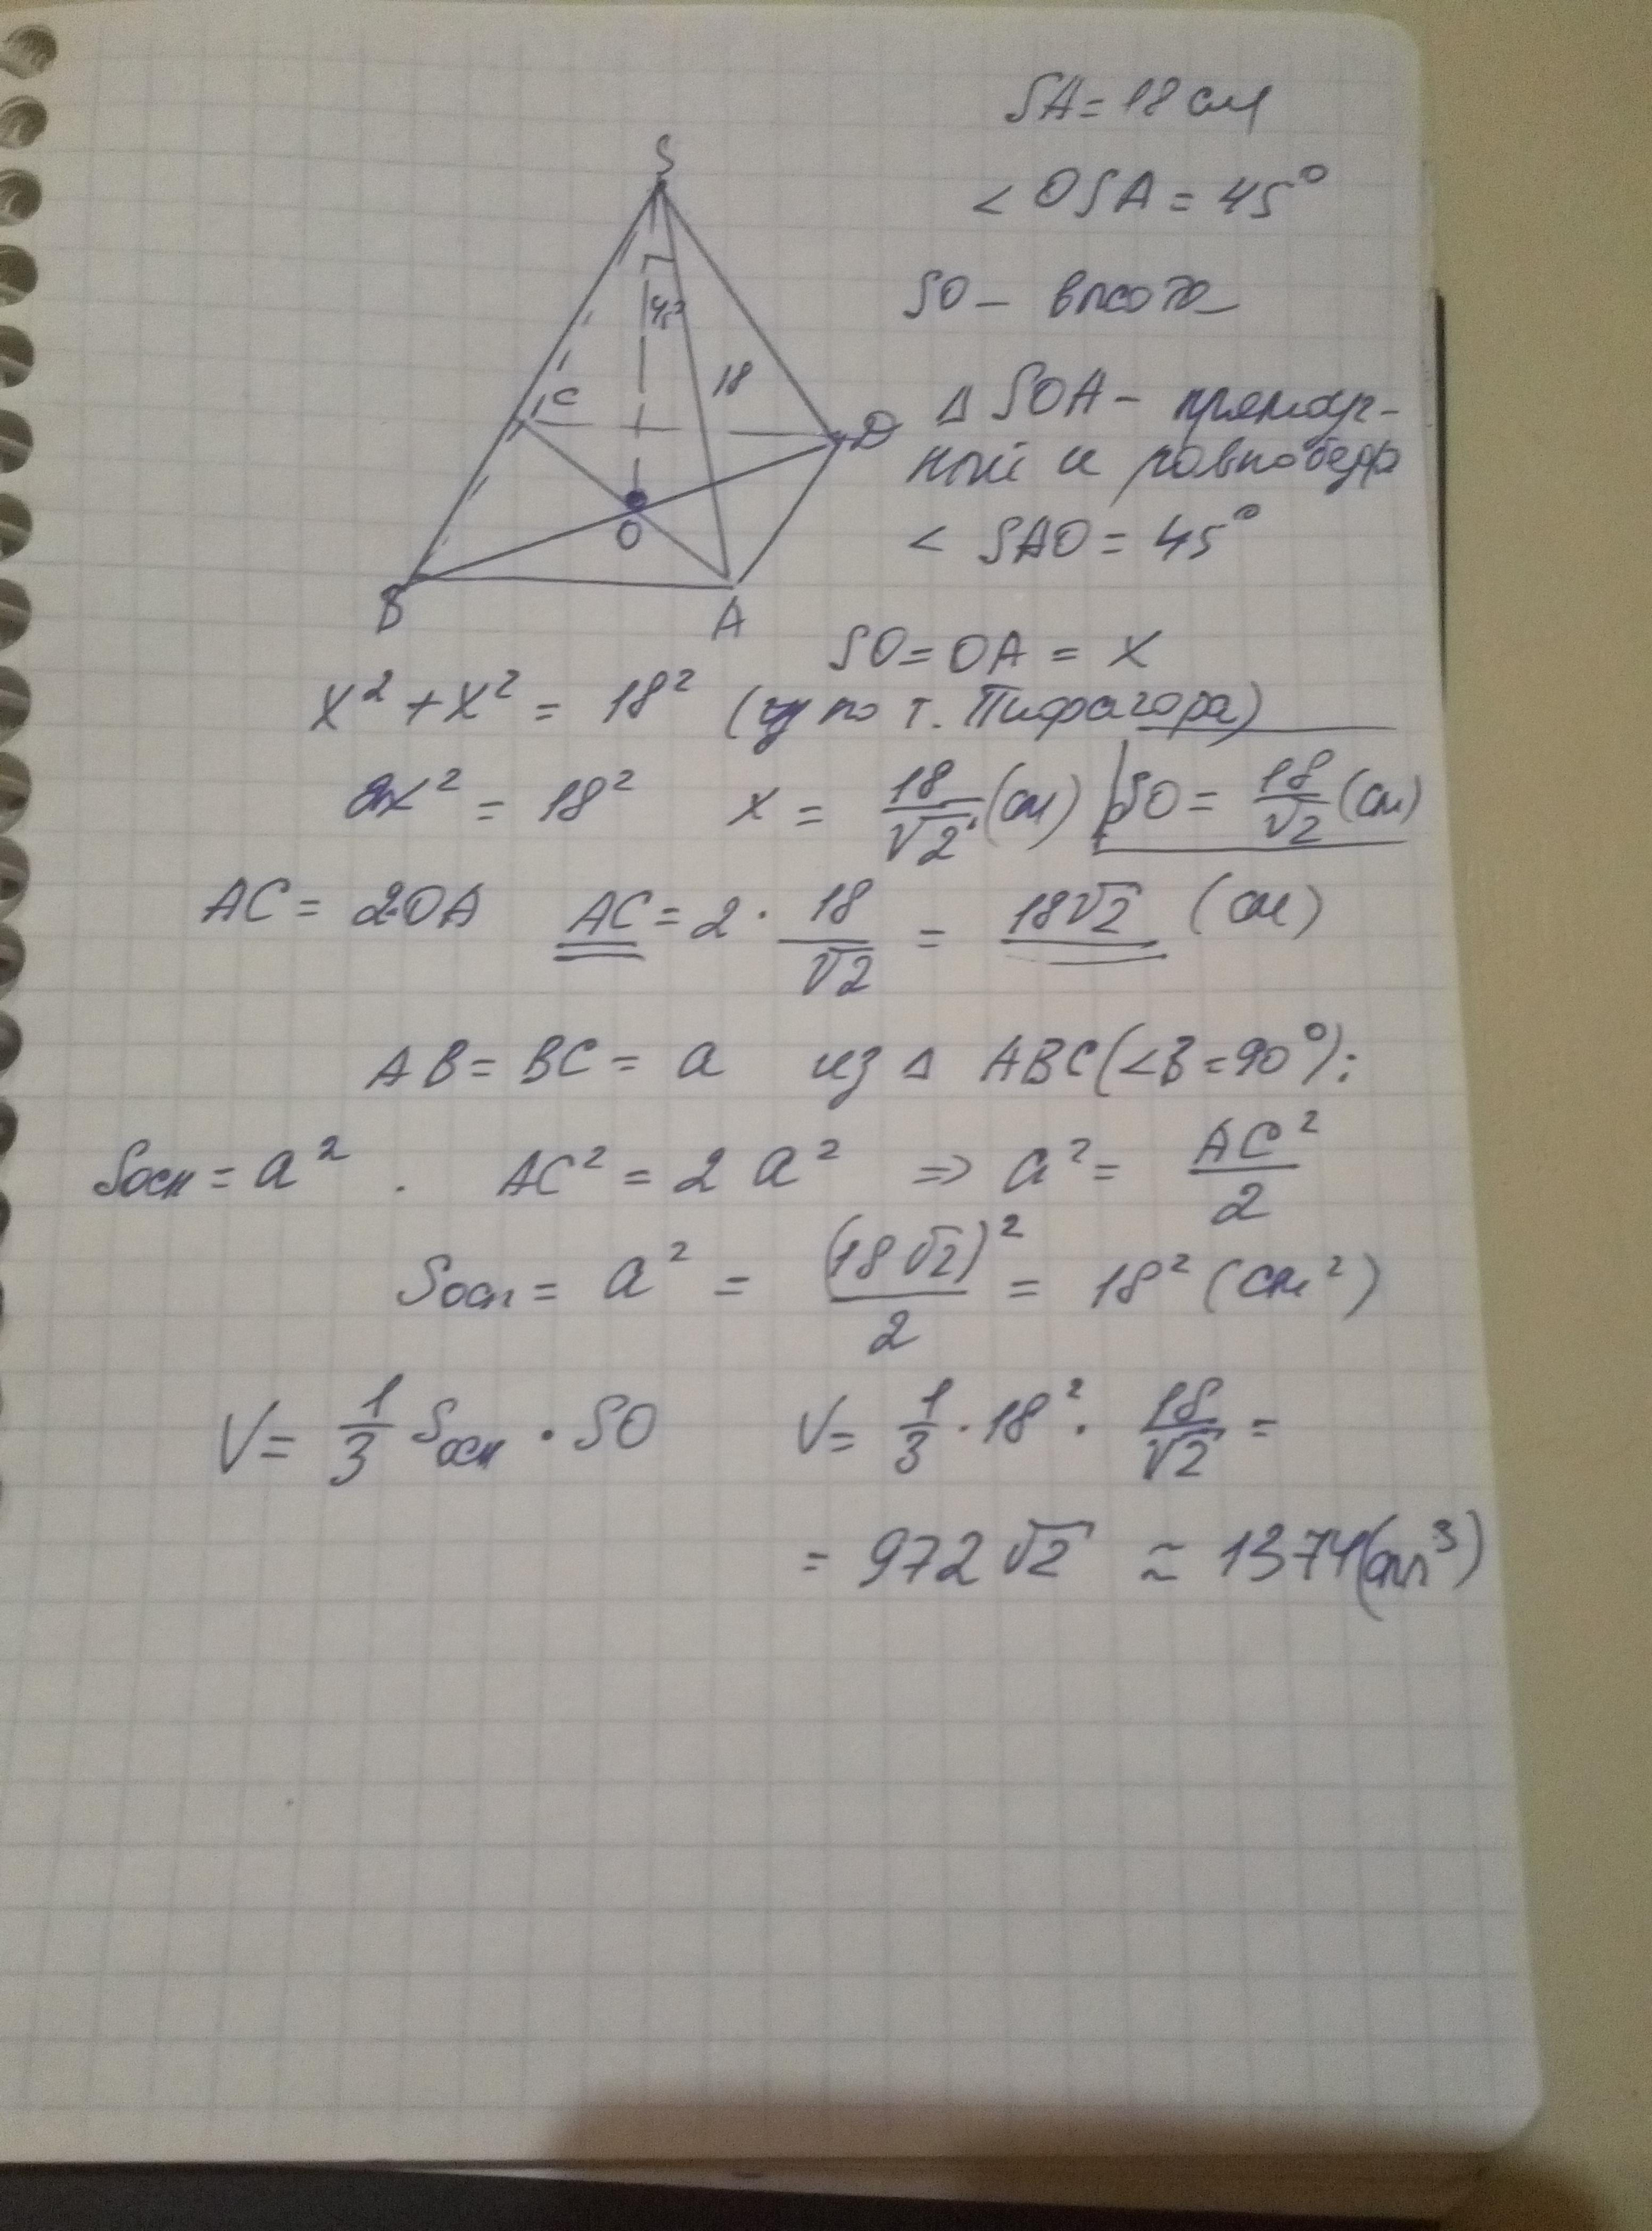 SA = 18 см
S
< OSA = 45°
SO – высота
45°
18
C
D
Δ SOA –
O
B
A
< SAO = 45°
SO = OA = x
x² + x² = 18² ( по т. Пифагора)
2x² = 18² x = 18/√2 (см) SO = 18/√2 (см)
AC = 2·OA AC = 2 · 18/√2 = 18√2 (см)
AB = BC = a из Δ ABC (<B = 90°):
Sосн = a² . AC² = 2 a² ⇒ a² = AC²/2
Sосн = a² = (18√2)²/2 = 18² (см²)
V = 1/3 Sосн · SO V = 1/3 · 18² · 18/√2 =
= 972√2 ≈ 1374 (см³)